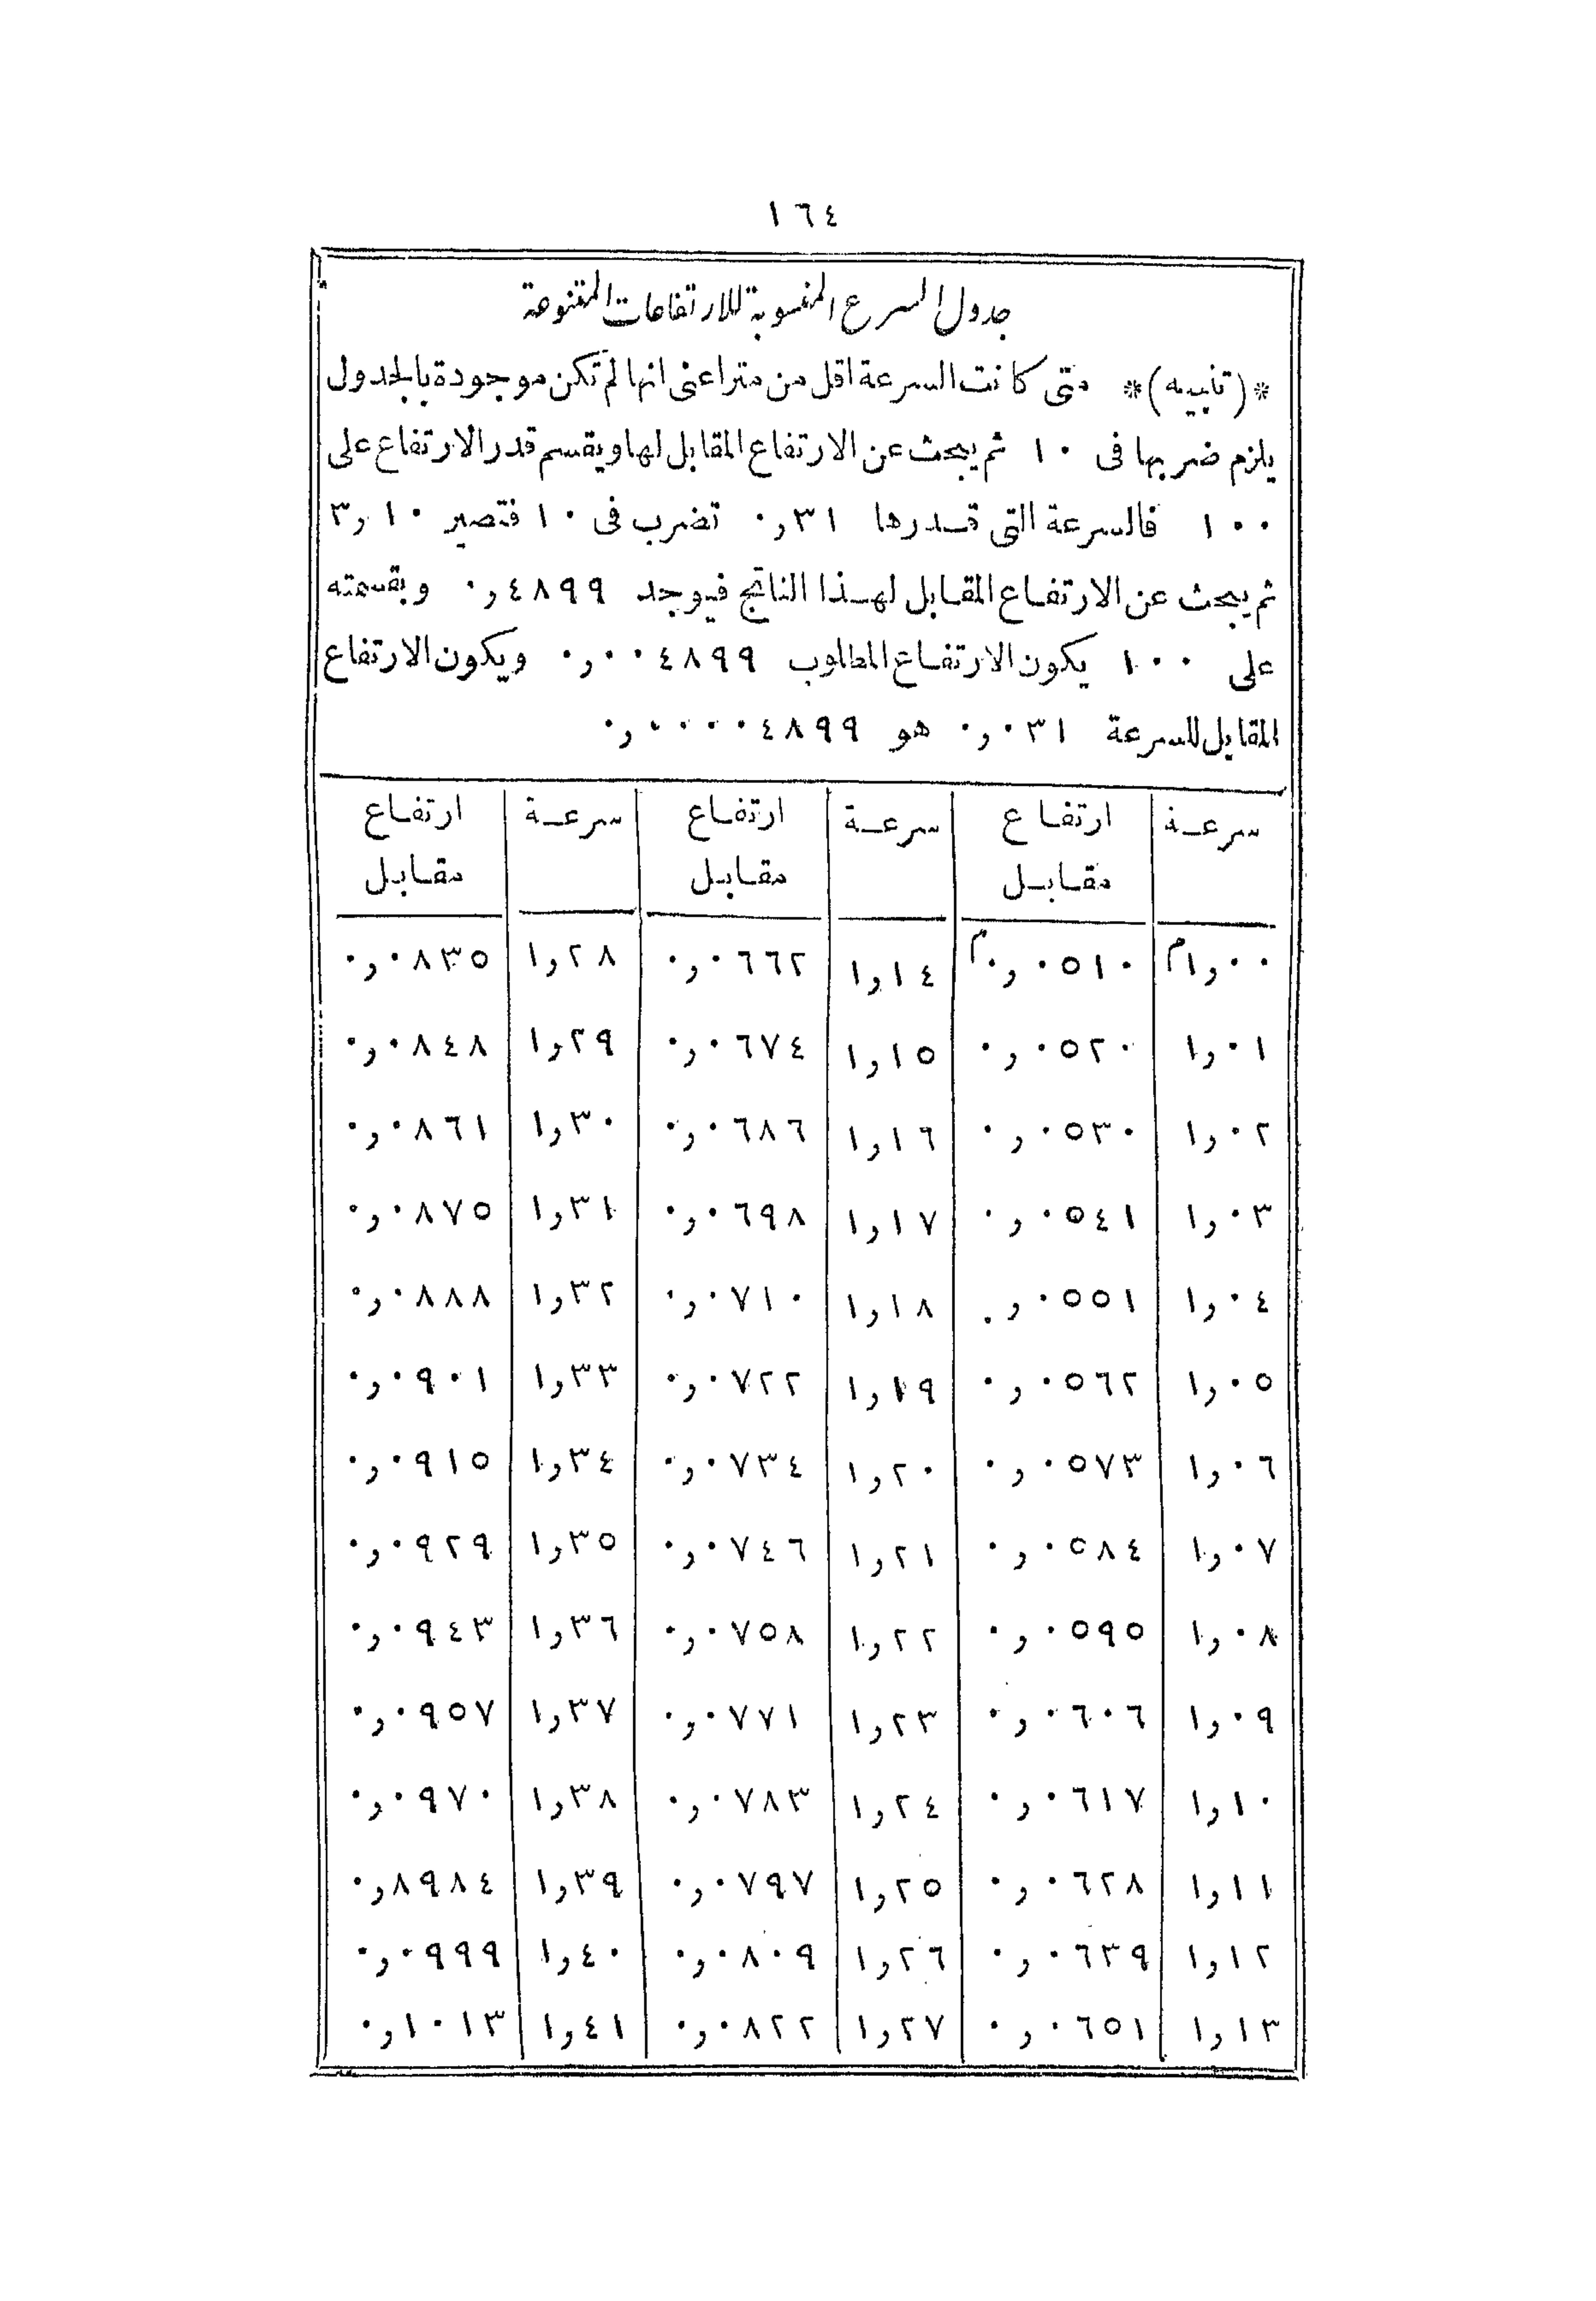 ١٦٤
جدول السرع المنسوبة للارتفاعات المتنوعة
*(تنبيه)* متى كانت السرعة اقل من متراعنى انها لم تكن موجودة بالجدول
يلزم ضربها فى ١٠ ثم يبحث عن الارتفاع المقابل لها ويقسم قدر الارتفاع على
١٠٠ فالسرعة التى قدرها ٠٫٣١ تضرب فى ١٠ فتصير ٣٫١٠
ثم يبحث عن الارتفاع المقابل لهذا الناتج فيوجد ٠٫٤٨٩٩ وبقسمته
على ١٠٠ يكون الارتفاع المطلوب ٠٫٠٠٤٨٩٩ ويكون الارتفاع
المقابل للسرعة ٠٫٠٣١ هو ٠٫٠٠٠٠٤٨٩٩
سرعة ارتفاع سرعة ارتفاع سرعة ارتفاع
مقابل مقابل مقابل
١٫٠٠م ٠٫٠٥١٠م ١٫١٤ ٠٫٠٦٦٢ ١٫٢٨ ٠٫٠٨٣٥
١٫٠١ ٠٫٠٥٢٠ ١٫١٥ ٠٫٠٦٧٤ ١٫٢٩ ٠٫٠٨٤٨
١٫٠٢ ٠٫٠٥٣٠ ١٫١٦ ٠٫٠٦٨٦ ١٫٣٠ ٠٫٠٨٦١
١٫٠٣ ٠٫٠٥٤١ ١٫١٧ ٠٫٠٦٩٨ ١٫٣١ ٠٫٠٨٧٥
١٫٠٤ ٠٫٠٥٥١ ١٫١٨ ٠٫٠٧١٠ ١٫٣٢ ٠٫٠٨٨٨
١٫٠٥ ٠٫٠٥٦٢ ١٫١٩ ٠٫٠٧٢٢ ١٫٣٣ ٠٫٠٩٠١
١٫٠٦ ٠٫٠٥٧٣ ١٫٢٠ ٠٫٠٧٣٤ ١٫٣٤ ٠٫٠٩١٥
١٫٠٧ ٠٫٠٥٨٤ ١٫٢١ ٠٫٠٧٤٦ ١٫٣٥ ٠٫٠٩٢٩
١٫٠٨ ٠٫٠٥٩٥ ١٫٢٢ ٠٫٠٧٥٨ ١٫٣٦ ٠٫٠٩٤٣
١٫٠٩ ٠٫٠٦٠٦ ١٫٢٣ ٠٫٠٧٧١ ١٫٣٧ ٠٫٠٩٥٧
١٫١٠ ٠٫٠٦١٧ ١٫٢٤ ٠٫٠٧٨٣ ١٫٣٨ ٠٫٠٩٧٠
١٫١١ ٠٫٠٦٢٨ ١٫٢٥ ٠٫٠٧٩٧ ١٫٣٩ ٠٫٨٩٨٤
١٫١٢ ٠٫٠٦٣٩ ١٫٢٦ ٠٫٠٨٠٩ ١٫٤٠ ٠٫٠٩٩٩
١٫١٣ ٠٫٠٦٥١ ١٫٢٧ ٠٫٠٨٢٢ ١٫٤١ ٠٫١٠١٣